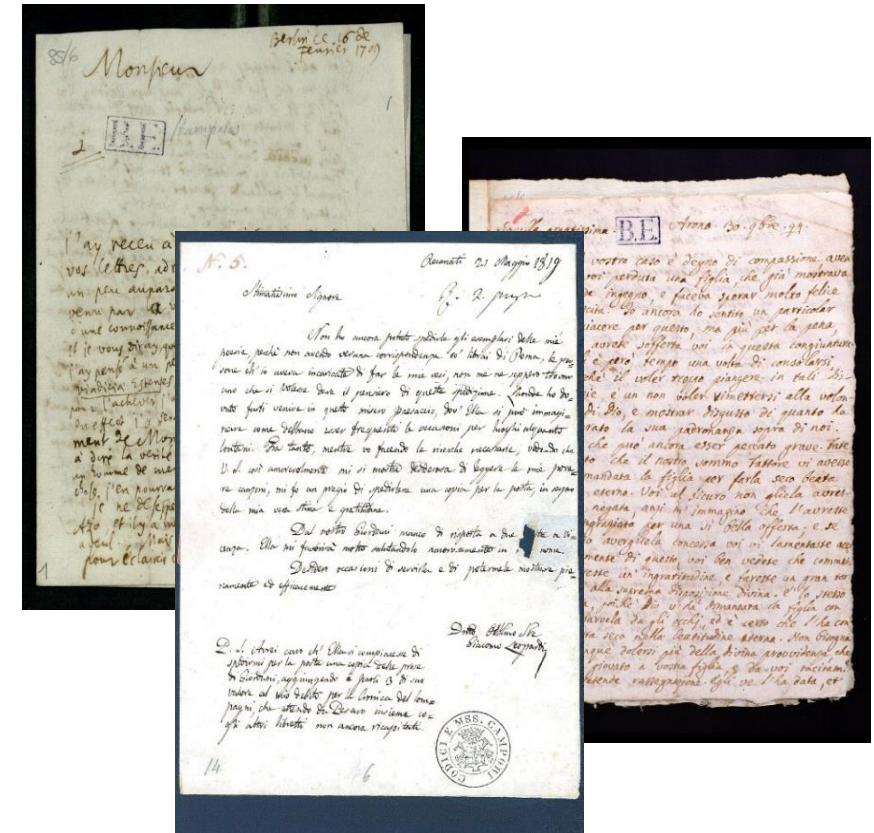 85/6
Berlin ce 16 de
Fevrier 1709
Monsieur
1
J'ay receu à
vos lettres, adr
un peu aupara
venu par
d'une connoissance
et je vous diray, que
j'ay pensé à un pe
l'achever j'a
ment de Mon
à dire la verité
un homme de me
chose, j'en pourra
je ne desespe
Azo et il y a m
ayeul. Mais
pour éclaircir
1
N. 5.
Recanati 21 Maggio 1819
Stimatissimo Signore
Non ho ancora potuto spedirle gli esemplari delle mie
poesie, perchè non avendo veruna corrispondenza co' librai di Roma, le per-
sone ch'io aveva incaricate di far le mie veci, non me ne seppero trovar
uno che si volesse dare il pensiero di questa spedizione. Laonde ho do-
vuto farli venire in questo misero paesaccio, dov' Ella si può immagi-
nare come debbono esser frequenti le occasioni per luoghi alquanto
lontani. Fra tanto, mentre vo facendo le ricerche necessarie, vedendo che
V. S. così amorevolmente mi si mostra desiderosa di leggere le mie pove-
re canzoni, mi fo un pregio di spedirlene una copia per la posta, in segno
della mia vera stima e gratitudine.
Dal nostro Giordani manco di risposta a due
cenza. Ella mi favorirà molto salutandolo amorosamente in nome.
Desidero occasioni di servirla e di potermele mostrare pie-
namente ed efficacemente
Giacomo Leopardi
P. S. Avrei caro ch' Ella si compiacesse di
spedirmi per la posta una copia delle prose
di Giordani, aggiungendo i paoli 3 di suo
valore al mio debito per la Cronica del Com-
pagni, che attendo da Pesaro insieme co-
gli altri libretti non ancora ricapitati.
14
6
CODICI E MSS. CAMPORI
B.E.
Arona 30. 9bre. 94.
vostro caso è degno di compassione, aven
voi perduta una figlia, che già mostrava
de ingegno, e faceva sperar molto felice
scita. Io ancora ho sentito un particolar
iacere per questo, ma più per la pena,
avrete sofferta voi in questa congiuntura
è però tempo una volta di consolarsi,
chè il voler troppo piangere in tali di-
zie è un non voler rimettersi alla volon
di Dio, e mostrar disgusto di quanto ha
rato la sua padronanza sopra di noi.
che può ancora esser peccato grave. Fate
to che il nostro sommo Fattore vi avesse
mandata la figlia per farla seco beata
eterno. Voi al sicuro non gliela avres
negata, anzi m' immagino che l'avreste
ingraziato per una sì bella offerta; e se
avergliela concessa voi vi lamentaste
mente di questo, voi ben vedete che
reste un' ingratitudine, e fareste un gran tor
alla suprema disposizione divina. È lo stesso
poichè Dio vi ha dimandata la figlia con
gli occhi, ed è certo che l'ha con
ta seco nella beatitudine eterna. Non bisogna
que dolersi più della divina provvidenza, che
giovato a vostra figlia, e da voi
tende rassegnazione. Egli ve l'ha data, et